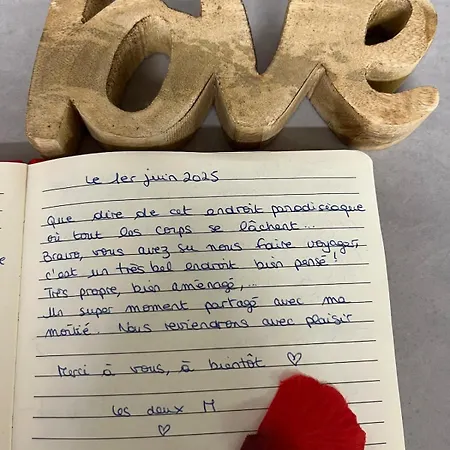 love
Le 1er juin 2025
Que dire de cet endroit paradisiaque
où tout les corps se lâchent...
Bravo, vous avez su nous faire voyager,
c'est un très bel endroit bien pensé !
Très propre, bien aménagé,...
Un super moment partagé avec ma
moitié. Nous reviendrons avec plaisir
Merci à vous, à bientôt ♡
Les deux M
♡